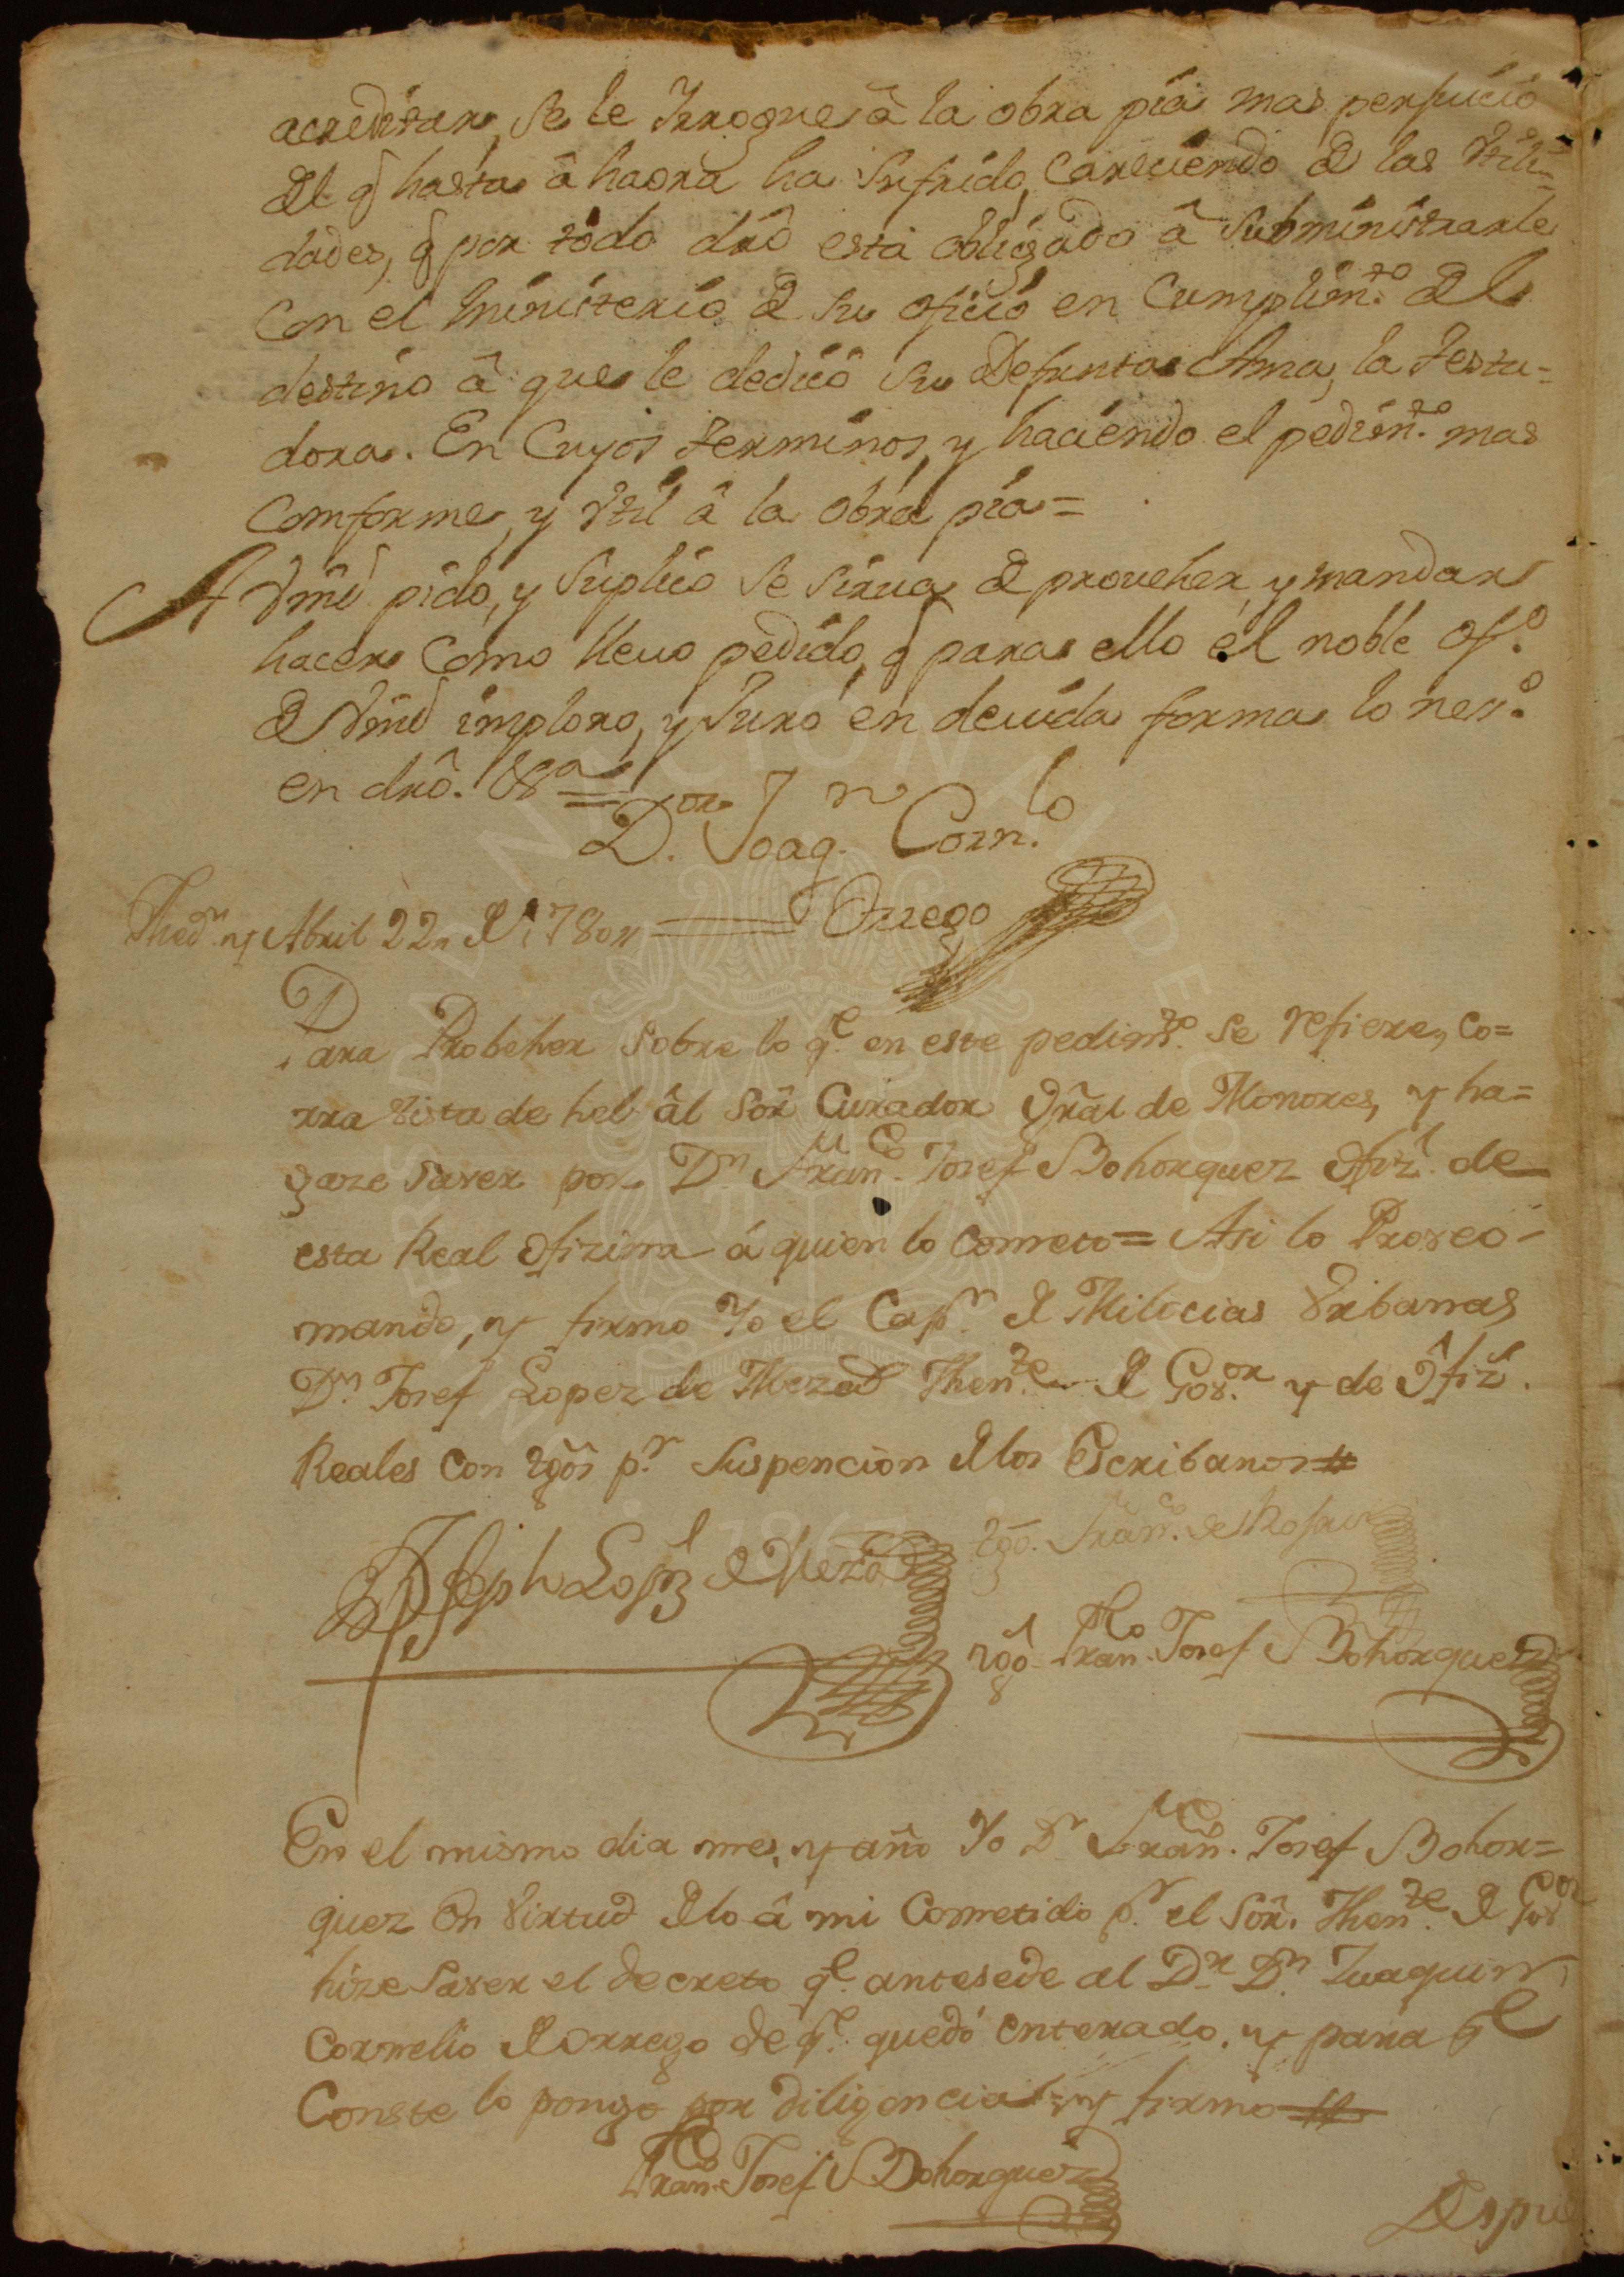 acreditar, se le Yrrogue â la obra pia mas perjuicio
del q̃ hasta âhaora ha sufrido, careciendo de las Vtili=
dades, q̃ por todo dr̃o está obligado â Subministrarle
Con el ministerio de su oficio en Cumplim.to del
destino â que le dedicó su Defunta Ama, la Testa=
dora. En Cuyos terminos, y haciendo el pedim.to mas
Comforme, y Vtil â la Obra pia=
A Vm̃d pido, y Suplico Se Sirva de proveher, y mandar
hacer Como llevo pedido, q̃ para ello el noble of.o
de Vm̃d imploro, y Juro en devida forma lo nes.o
en drô. Vª=
D.or Joaq.n Corn.lo
Orrego
y Abril 22,, de 1780,,
Para Probeher Sobre lo q.e en este pedim.to se refiere, Co=
rra Vista de hel âl Sor̃ Curador Gr̃al de Monores, y ha=
gaze saver por D.n Fran.co Josef Bohorquez Ofiz.l de
esta Real Ofizina á quien lo Cometo= Asi lo Proveo
mando, y firmo Yo el Cap.n de Milicias Vrbanas
D.n Josef Lopez de Meza Then.te de Gov.or y de Ofiz.s
Reales Con tg̃os p.r Suspencion de los Escribanos=
Joseph Lopz de Meza
tgo. Fran.co de
tgo. Fran.co Josef Bohorquez
En el mismo dia mes, y año Yo D.n Fran.co Josef Bohor=
quez En Virtud de lo â mi Cometido p.r el Sor̃. Then.te de Gov.or
hize Saver el decreto q.e antesede al D.r D.n Juaquin
Cornelio de Orrego de q.e quedó enterado, y para q.e
Conste lo pongo por diligencia y firmo=
Fran.co Josef Bohorquez
Despu
UNIVERSIDAD NACIONAL DE COLOMBIA
1867